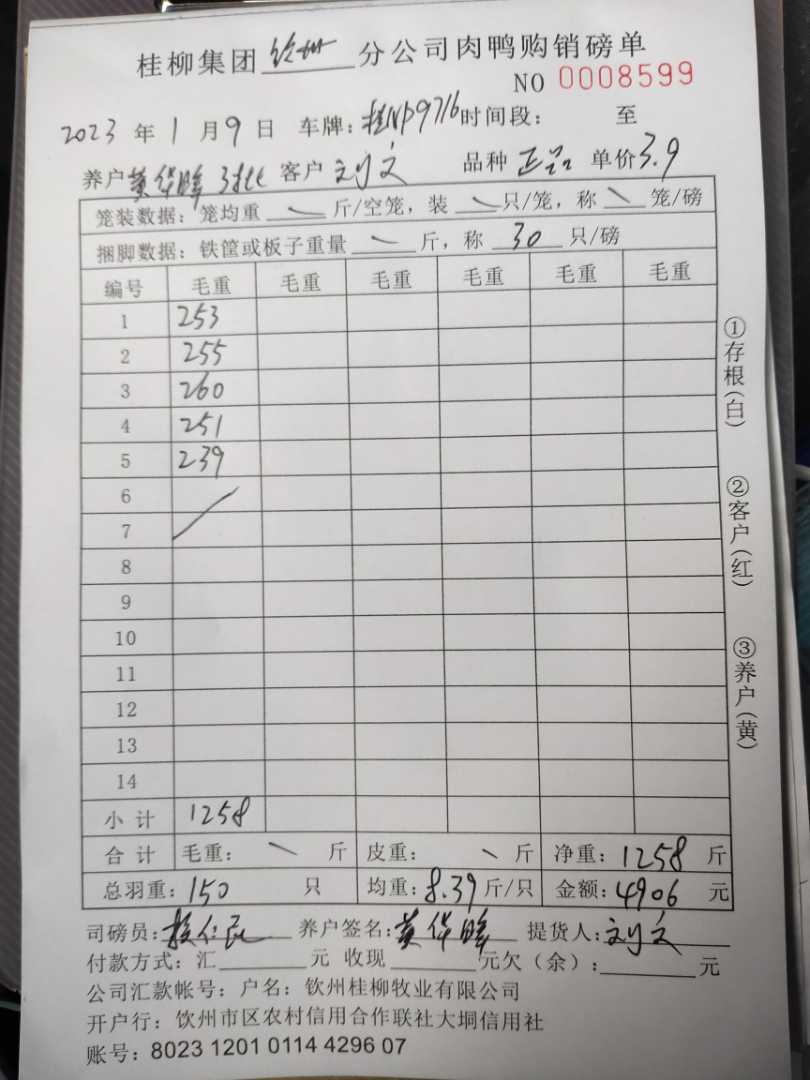 桂柳集团 钦州 分公司肉鸭购销磅单
NO 0008599
2023 年 1 月 9 日 车牌: 桂NP9716 时间段: 至
养户 黄华晖 3批 客户 刘文 品种 正品 单价 3.9
笼装数据: 笼均重 \ 斤/空笼, 装 \ 只/笼, 称 \ 笼/磅
捆脚数据: 铁筐或板子重量 \ 斤, 称 30 只/磅
编号 毛重 毛重 毛重 毛重 毛重 毛重
1 253
2 255
3 260
4 251
5 239
6
7
8
9
10
11
12
13
14
小计 1258
合计 毛重: \ 斤 皮重: \ 斤 净重: 1258 斤
总羽重: 150 只 均重: 8.39 斤/只 金额: 4906 元
司磅员: 养户签名: 黄华晖 提货人: 刘文
付款方式: 汇 元 收现 元欠(余): 元
公司汇款帐号: 户名: 钦州桂柳牧业有限公司
开户行: 钦州市区农村信用合作联社大垌信用社
账号: 8023 1201 0114 4296 07
①存根(白)
②客户(红)
③养户(黄)